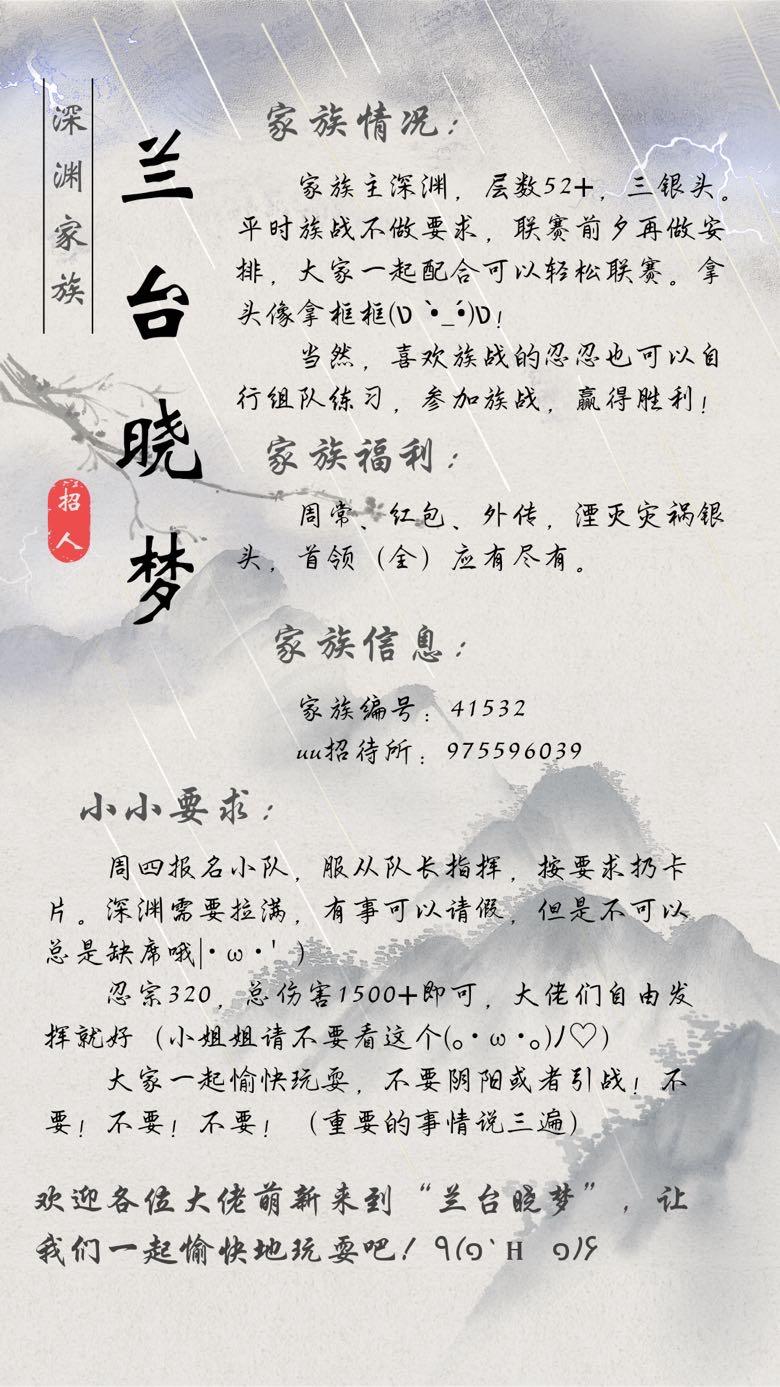 深渊家族
兰台晓梦
招人
家族情况：
家族主深渊，层数52+，三银头。
平时族战不做要求，联赛前夕再做安
排，大家一起配合可以轻松联赛。拿
头像拿框框(ง •̀_•́)ง！
当然，喜欢族战的忍忍也可以自
行组队练习，参加族战，赢得胜利！
家族福利：
周常、红包、外传，湮灭灾祸银
头，首领（全）应有尽有。
家族信息：
家族编号：41532
uu招待所：975596039
小小要求：
周四报名小队，服从队长指挥，按要求扔卡
片。深渊需要拉满，有事可以请假，但是不可以
总是缺席哦|･ω･'）
忍宗320，总伤害1500+即可，大佬们自由发
挥就好（小姐姐请不要看这个(｡･ω･｡)ﾉ♡）
大家一起愉快玩耍，不要阴阳或者引战！不
要！不要！不要！（重要的事情说三遍）
欢迎各位大佬萌新来到“兰台晓梦”，让
我们一起愉快地玩耍吧！٩(๑`н ๑)۶